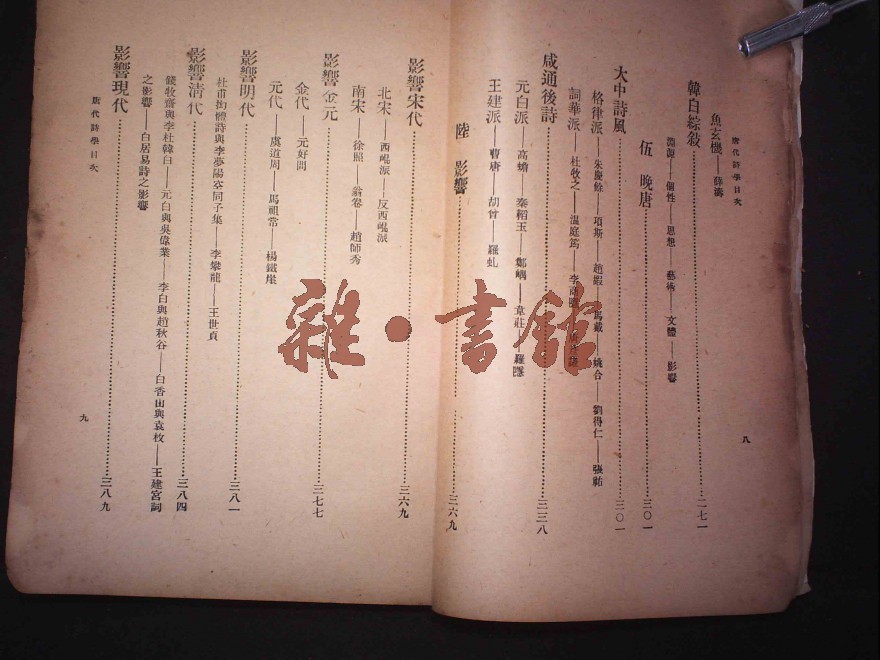 唐代詩學目次
魚玄機——薛濤
韓白綜敍……二七一
淵源——個性——思想——藝術——文體——影響
伍 晚唐……三〇一
大中詩風……三〇一
格律派——朱慶餘——項斯——趙嘏——馬戴——姚合——劉得仁——張祜
詞華派——杜牧之——溫庭筠——李商隱
咸通後詩……三三八
元白派——高蟾——秦韜玉——鄭嵎——韋莊——羅隱
王建派——曹唐——胡曾——羅虬
八
陸 影響……三六九
影響宋代……三六九
北宋——西崐派——反西崐派
南宋——徐照——翁卷——趙師秀
影響金元……三七七
金代——元好問
元代——虞道周——馬祖常——楊鐵崖
影響明代……三八一
杜甫拘體詩與李夢陽空同子集——李攀龍——王世貞
影響清代……三八四
錢牧齋與李杜韓白——元白與吳偉業——李白與趙秋谷——白香山與袁枚——王建宮詞
之影響——白居易詩之影響
影響現代……三八九
唐代詩學目次
九
雜·書館